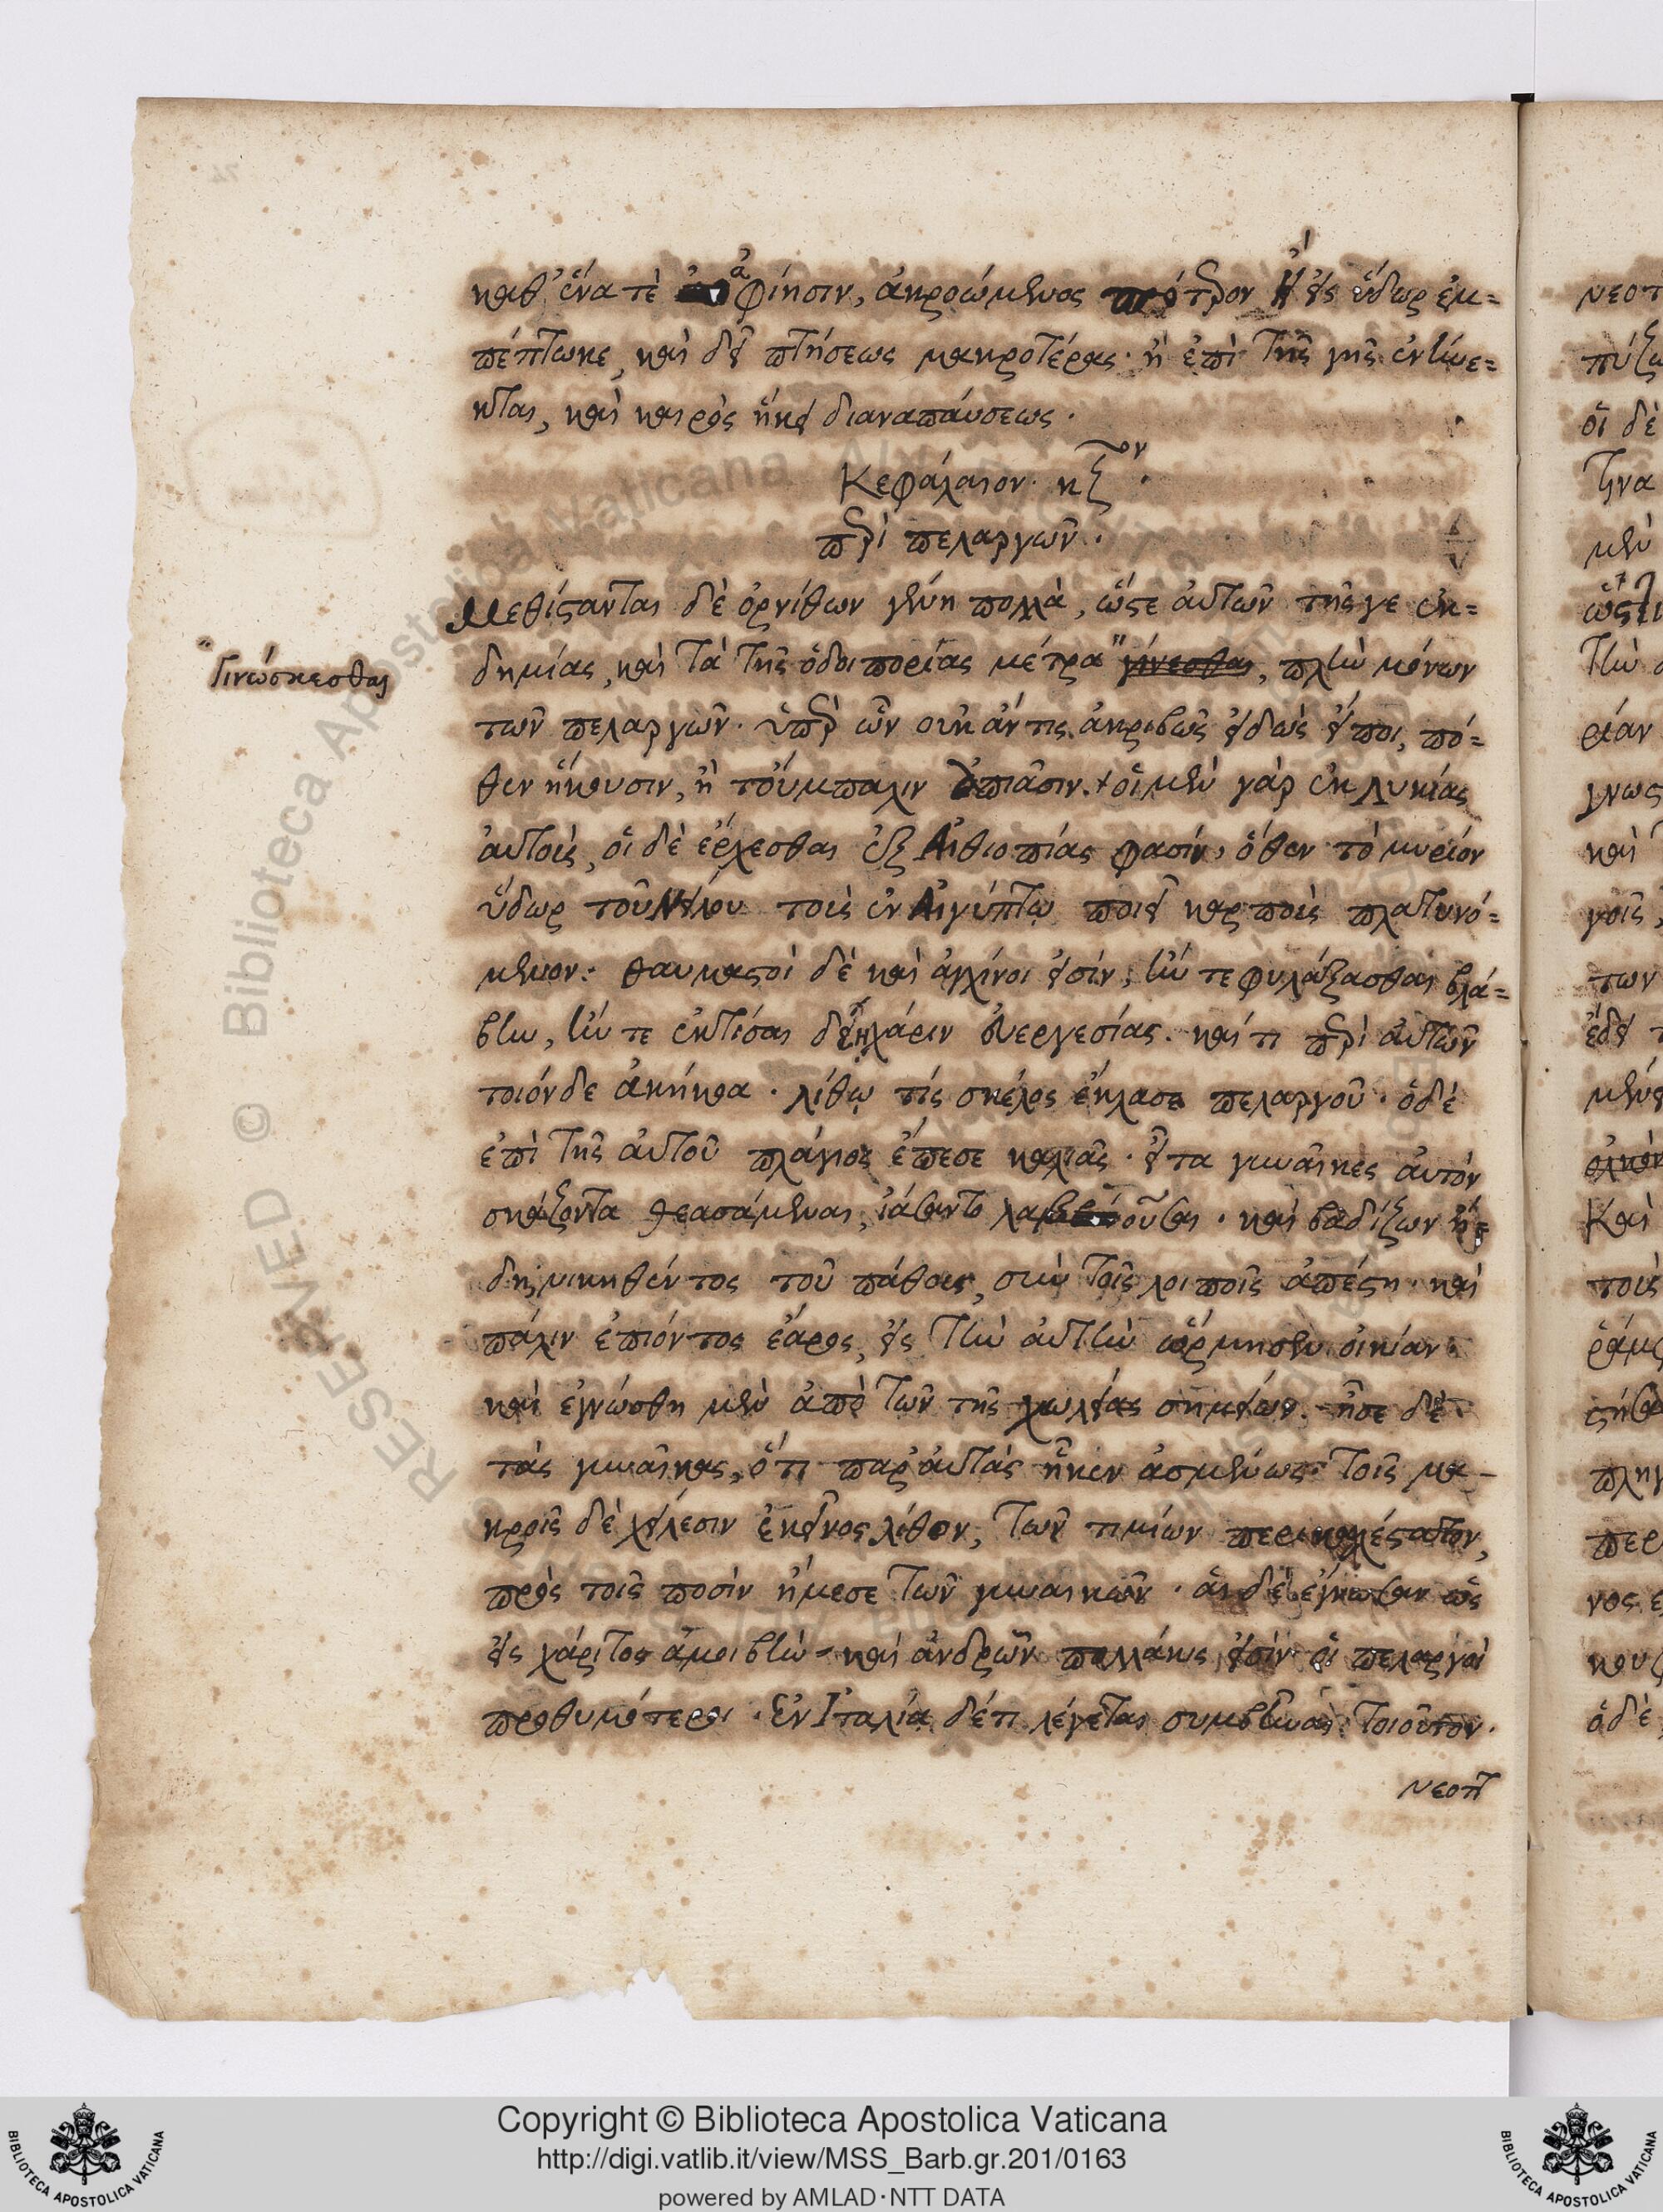 καθ' ἕνα τὲ ἀφίησιν, ἀκροώμενος πρότερον εἰ εἰς ὕδωρ ἐμ=
πέπτωκε, καὶ δεῖ πτήσεως μακροτέρας· ἢ ἐπὶ τῆς γῆς ἐντίνε=
κται, καὶ καιρὸς ἥκει διαναπαύσεως.
Κεφάλαιον κξον.
περὶ πελαργῶν.
Μεθίστανται δὲ ὀρνίθων γένη πολλὰ, ὥστε αὐτῶν τῆς γε ἐκ=
δημίας, καὶ τὰ τῆς ὁδοιπορίας μέτρα " γίνεσθαι, πλὴν μόνων
" Γινώσκεσθαι
τῶν πελαργῶν. ὑπὲρ ὧν οὐκ ἄν τις ἀκριβῶς εἰδὼς εἴποι, πό=
θεν ἥκουσιν, ἢ τοὔμπαλιν ἀπιᾶσιν. οἱ μὲν γὰρ ἐκ Λυκίας
αὐτοὺς, οἱ δὲ ἔρχεσθαι ἐξ Αἰθιοπίας φασίν, ὅθεν τὸ μυρίον
ὕδωρ τοῦ Νείλου τοὺς ἐν Αἰγύπτῳ ποιεῖ καρποὺς πλατυνό=
μενον: θαυμαστοὶ δὲ καὶ ἀγχίνοι εἰσίν, ἤν τε φυλάξασθαι βλά=
βην, ἤν τε ἐκτίσαι δεήσῃ χάριν εὐεργεσίας. καί τι περὶ αὐτῶν
τοιόνδε ἀκήκοα. λίθῳ τίς σκέλος ἔκλασε πελαργοῦ. ὁ δὲ
ἐπὶ τῆς αὐτοῦ πλάγιος ἔπεσε καλιᾶς. εἶτα γυναῖκες αὐτὸν
σκάζοντα θεασάμεναι, ἰάσαντο λαβοῦσαι. καὶ βαδίζων ἤ=
δη, νικηθέντος τοῦ πάθους, σὺν τοῖς λοιποῖς ἀπέστη. καὶ
πάλιν ἐπιόντος ἔαρος, εἰς τὴν αὐτὴν ὥρμησεν οἰκίαν.
καὶ ἐγνώσθη μὲν ἀπὸ τῶν τῆς χωλείας σημείων. ᾖσε δὲ
τὰς γυναῖκας, ὅτι παρ' αὐτὰς ἧκεν ἀσμένως. τοῖς μα-
κροῖς δὲ χείλεσιν ἐκεῖνος λίθον, τῶν τιμίων περικαλέστατον,
πρὸς τοῖς ποσὶν ἤμεσε τῶν γυναικῶν. αἱ δὲ ἔγνωσαν ὡς
εἰς χάριτος ἀμοιβὴν. καὶ ἀνδρῶν πολλάκις εἰσὶν οἱ πελαργοὶ
προθυμότεροι. Ἐν Ἰταλίᾳ δέ τι λέγεται συμβῆναι τοιοῦτον.
νεοττ
Copyright © Biblioteca Apostolica Vaticana
http://digi.vatlib.it/view/MSS_Barb.gr.201/0163
powered by AMLAD·NTT DATA